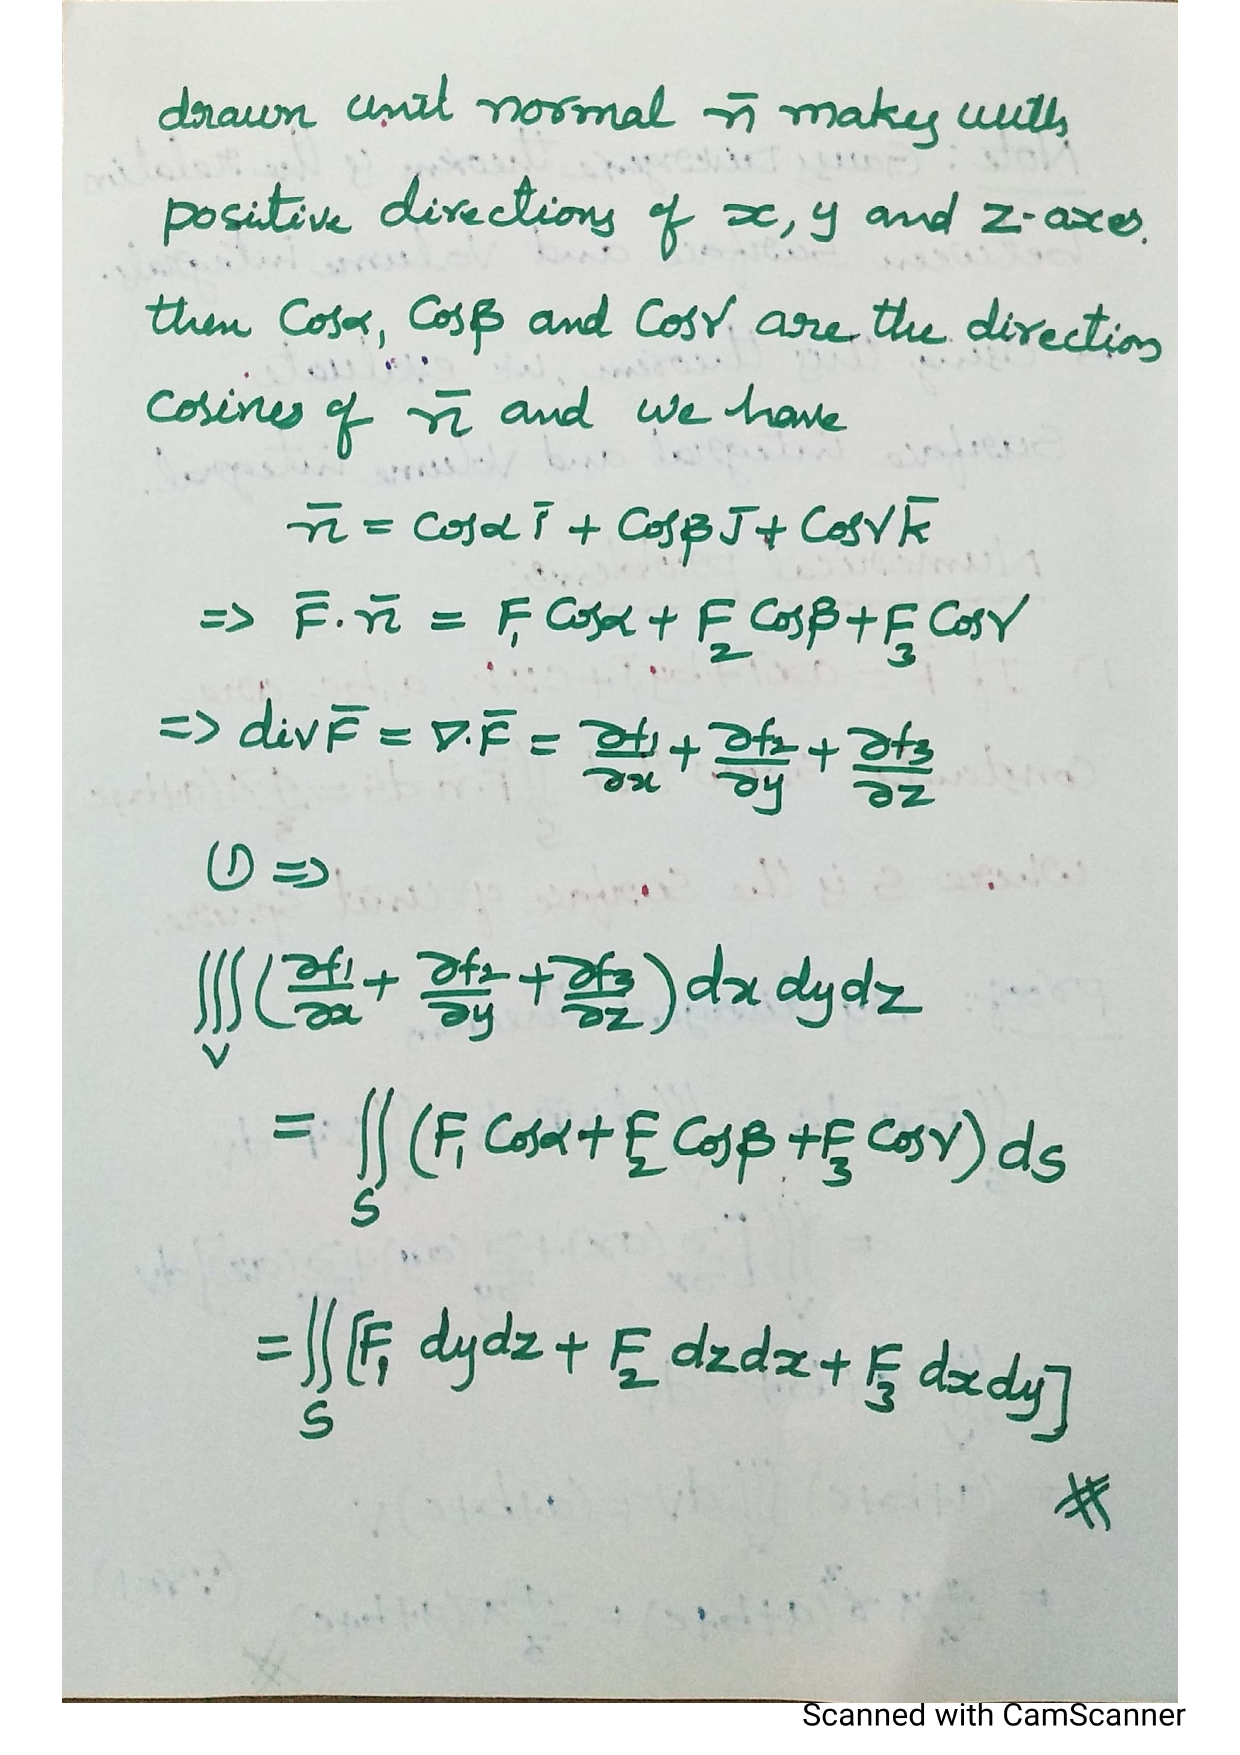 drawn unit normal n̄ makes with
positive directions of x, y and z-axes.
then Cosα, Cosβ and Cosγ are the direction
cosines of n̄ and we have
n̄ = Cosα ī + Cosβ J̄ + Cosγ k̄
=> F̄ . n̄ = F₁ Cosα + F₂ Cosβ + F₃ Cosγ
=> div F̄ = ∇.F̄ = ∂f₁/∂x + ∂f₂/∂y + ∂f₃/∂z
① =>
∭_V (∂f₁/∂x + ∂f₂/∂y + ∂f₃/∂z) dx dy dz
= ∬_S (F₁ Cosα + F₂ Cosβ + F₃ Cosγ) ds
= ∬_S [F₁ dydz + F₂ dzdx + F₃ dxdy]
Scanned with CamScanner